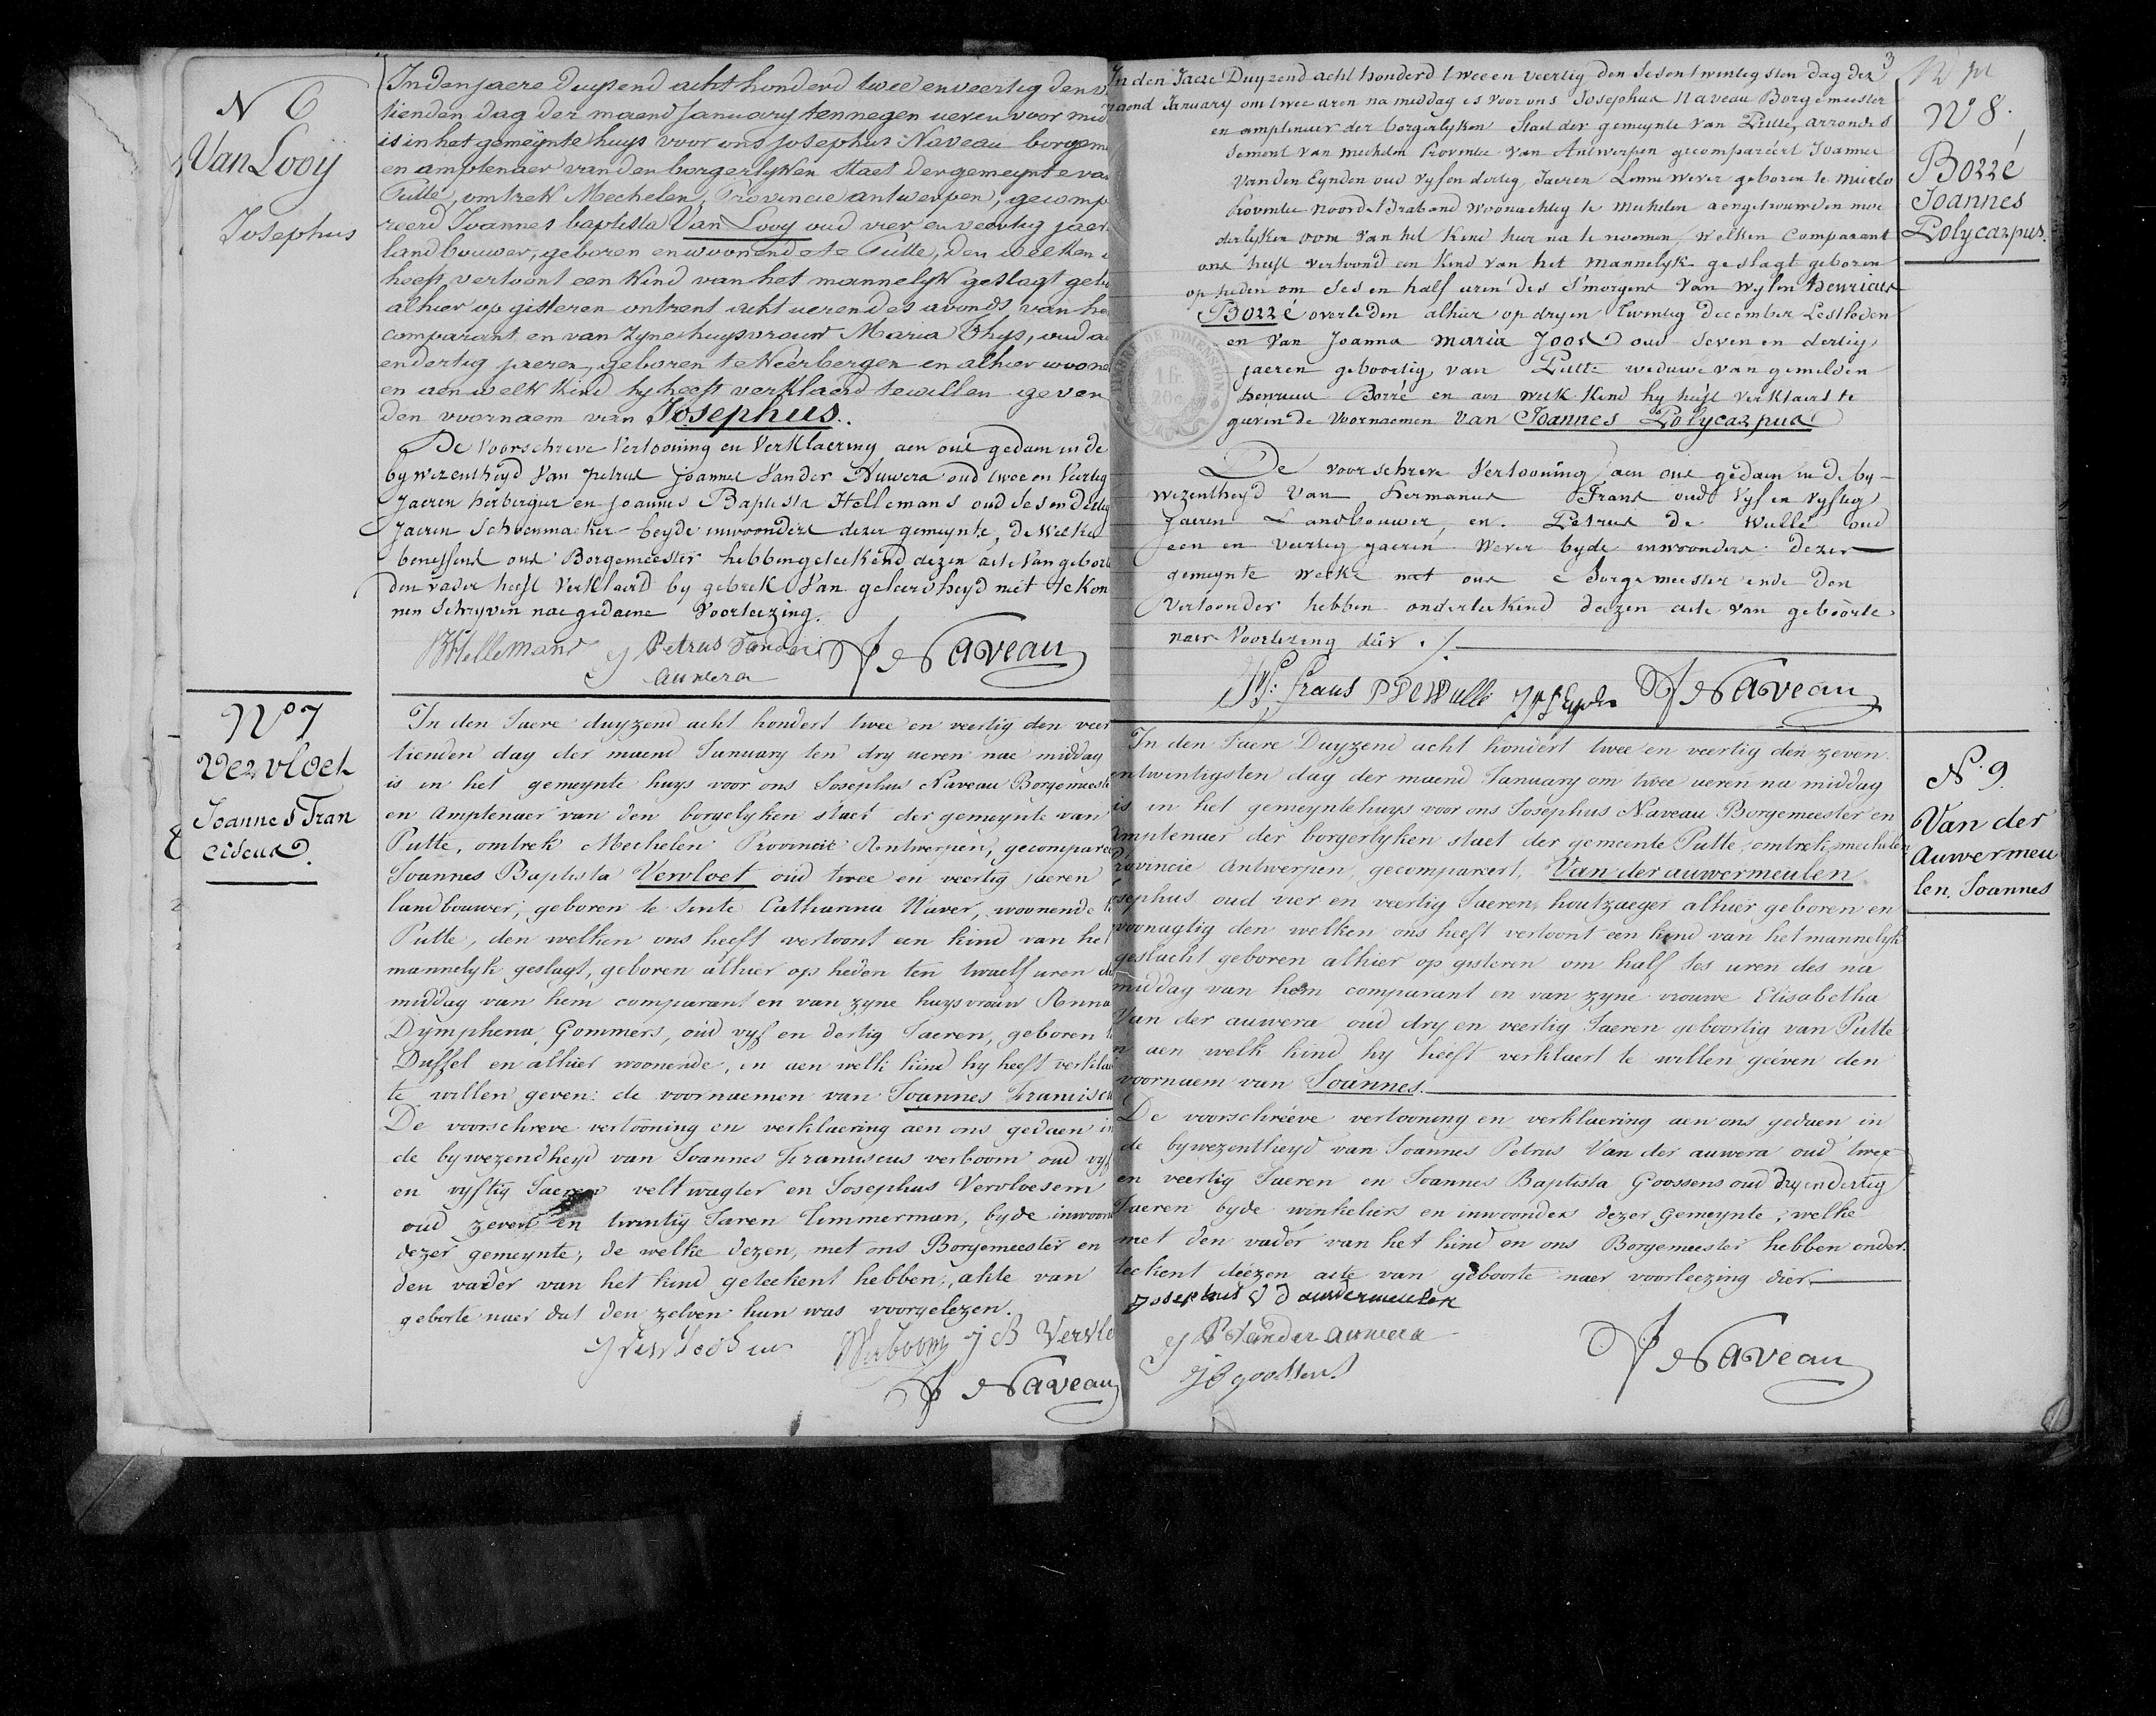 N 6
Van Looÿ
Josephus
In den jaere duysend acht honderd twee en veertig den
tienden dag der maend January ten negen ueren voor mid
is in het gemeynte huys voor ons Josephus Naveau borgem
en amptenaer van den borgerlyken staet der gemeynte va
Putte, omtrek Mechelen, Provincie antwerpen, gecomp
reerd Joannes baptista Van Looy oud vier en veertig jaer
landbouwer, geboren en woonende te Putte, den welken
heeft vertoont een kind van het mannelyk geslagt geb
alhier op gisteren ontrent acht ueren des avonds van he
comparant en van zyne huysvrouw Maria Thys, oud a
en dertig jaeren, geboren te Keerbergen en alhier woone
en aen welk kind hy heeft verklaerd te willen geven
den voornaem van Josephus.
De voorschreve vertooning en verklaering aen ons gedaen in de
bywezentheyd van petrus Joannes Vander Auwera oud twee en veertig
Jaeren herbergier en Joannes Baptista Hellemans oud ses en dertig
Jaeren Schoenmaeker beyde inwoonders dezer gemeynte, de welke
beneffens ons Borgemeester hebben geteekend dezen acte van geboort
den vader heeft verklaerd by gebrek van geleerdheyd niet te kon
nen schryven nae gedaene voorleezing.
JBHellemans J Petrus Vander J Naveau
Auwera
Nº 7
Vervloet
Joannes Fran
ciscus.
In den Jaere duyzend acht hondert twee en veertig den veer
tienden dag der maend January ten dry ueren nae middag
is in het gemeynte huys voor ons Josephus Naveau Borgemeeste
en Amptenaer van den borgelyken staet der gemeynte van
Putte, omtrek Mechelen Provincie Antwerpen, gecompare
Joannes Baptista Vervloet oud twee en veertig jaeren
landbouwer, geboren te Sinte Catharina Waver, woonende
Putte, den welken ons heeft vertoont een kind van het
mannelyk geslagt, geboren alhier op heden ten twaelf uren de
middag van hem comparant en van zyne huysvrouw Anna
Dymphena Gommers, oud vyf en dertig Jaeren, geboren
Duffel en alhier woonende, en aen welk kind hy heeft verklae
te willen geven de voornaemen van Joannes Franciscu
De voorschreve vertooning en verklaering aen ons gedaen in
de bywezendheyd van Joannes Franciscus verboom oud vyf
en vyftig Jaeren veltwagter en Josephus Vervloesem
oud zeven en twintig Jaren Timmerman, byde inwoone
dezer gemeynte, de welke dezen, met ons Borgemeester en
den vader van het kind geteekent hebben, akte van
geborte naer dat den zelven hun was voorgelezen.
Verboom J B Vervlo
J Naveau
3
In den Jaere Duyzend acht honderd twee en veertig den sesentwintigsten dag der
maend January om twee uren na middag is voor ons Josephus Naveau Borgemeester
en amptenaer der borgerlyken staet der gemeynte van Putte, arrondis
sement van mechelen Provintie van Antwerpen gecompareért Joannes
Vanden Eynden oud vyf en dertig Jaeren Linne wever geboren te mierlo
Provintie Noord Braband woonachtig te mechelen aengetrouwden moe
derlyken oom van het kind hier na te noemen, welken Comparant
ons heeft vertoond een kind van het mannelyk geslagt geboren
op heden om ses en half uren des s'morgens van wylen henricus
Borré overleden alhier op dry en twintig december Lestleden
en van Joanna maria Joos oud seven en dertig
jaeren geboortig van Putte weduwe van gemelden
henricus Borré en aen welk kind hy heeft verklaert te
geeven de voornaemen van Joannes Polycarpus
De voorschreve vertooning aen ons gedaen in de by-
wezentheyd van Hermanus Frans oud vyf en vyftig
jaeren Landbouwer, en Petrus De Wulle oud
een en veertig jaeren Wever byde inwoonders dezer
gemeynte welke met ons Borgemeester ende den
vertoonder hebben onderteekend deezen acte van geboorte
naer voorlezing dier ./.
Frans P De Wulle J Naveau
N° 8.
Borré
Joannes
Polycarpus.
In den Jaere Duyzend acht hondert twee en veertig den zeven
entwintigsten dag der maend January om twee ueren na middag
is in het gemeyntehuys voor ons Josephus Naveau Borgemeester en
amptenaer der borgerlyken staet der gemeente Putte, omtrek mechelen
Provincie Antwerpen, gecompareert, Van der auwermeulen
Josephus oud vier en veertig Jaeren, houtzaeger alhier geboren en
woonagtig den welken ons heeft vertoont een kind van het mannelyk
geslacht geboren alhier op gisteren om half ses uren des na
middag van hem comparant en van zyne vrouwe Elisabetha
Van der auwera oud dry en veertig Jaeren geboortig van Putte
en aen welk kind hy heeft verklaert te willen geéven den
voornaem van Joannes.
De voorschréeve vertooning en verklaering aen ons gedaen in
de bywezentheyd van Joannes Petrus Van der auwera oud twee
en veertig Jaeren en Joannes Baptista Goossens oud dry en dertig
Jaeren byde winkeliers en inwoonders dezer gemeynte, welke
met den vader van het kind en ons Borgemeester hebben onder
teekent déezen acte van geboorte naer voorleezing dier
Josephus V D auwermeulen
J P Vander auwera
J B goossens
J Naveau
N° 9.
Van der
Auwermeu
len. Joannes